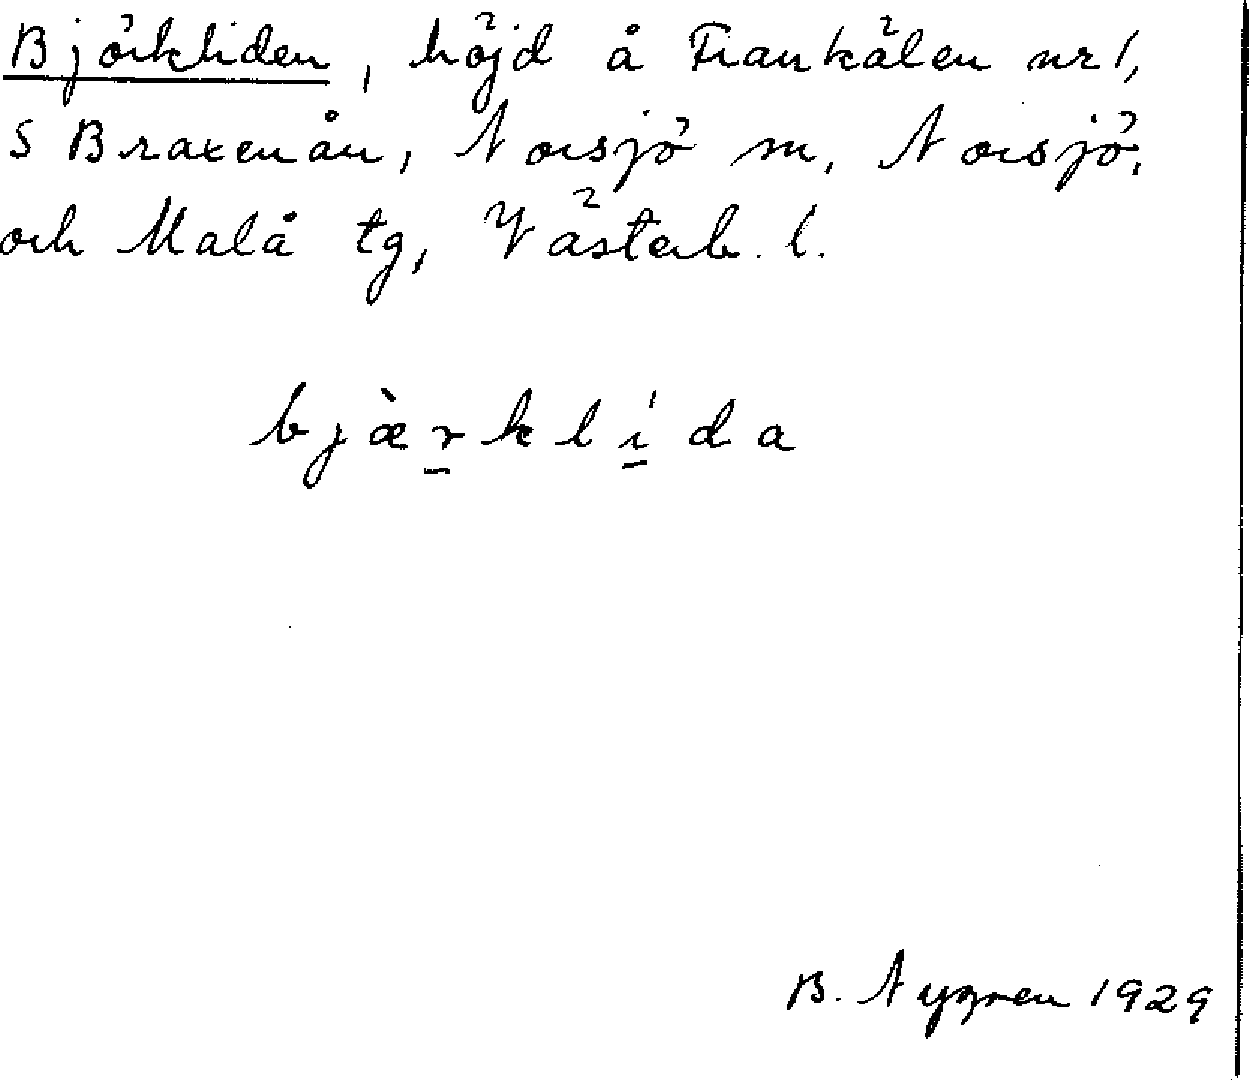 Björkliden, höjd å Frankälen nr 1,
S Braxenån, Norsjö sn, Norsjö
och Malå tg, Västerb. l.
bjæ̀rklída
B. Nygren 1929